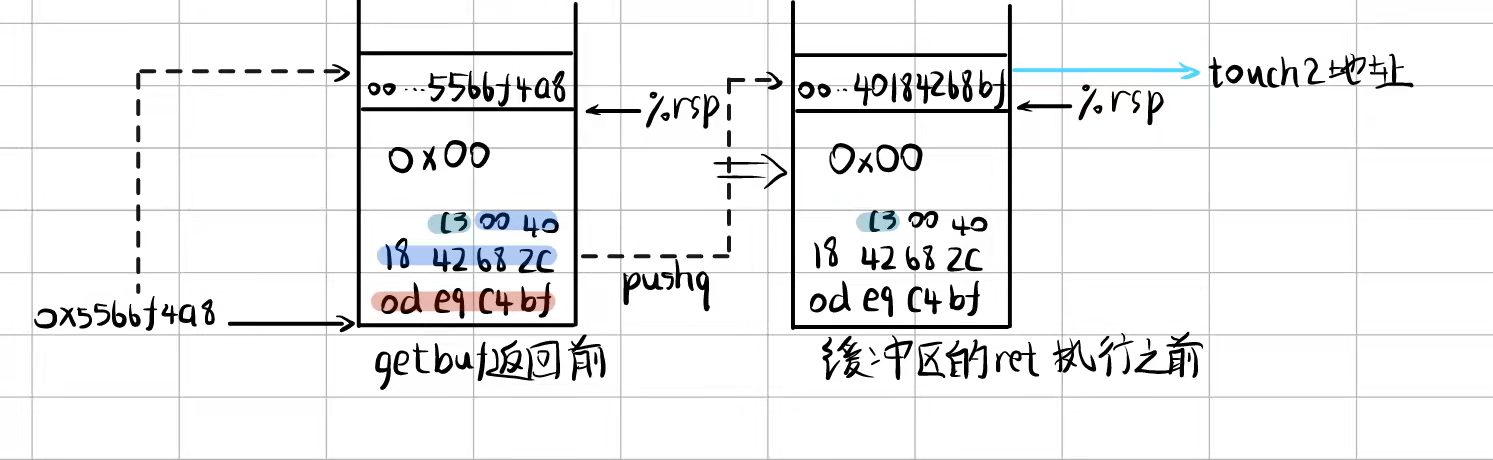 00...5566f4a8
%rsp
0x00
C3 00 40
18 42 68 2C
0d e9 C4 bf
0x5566f4a8
getbuf返回前
pushq
00..40184268bf
touch2地址
%rsp
0x00
C3 00 40
18 42 68 2C
0d e9 C4 bf
缓冲区的ret 执行之前